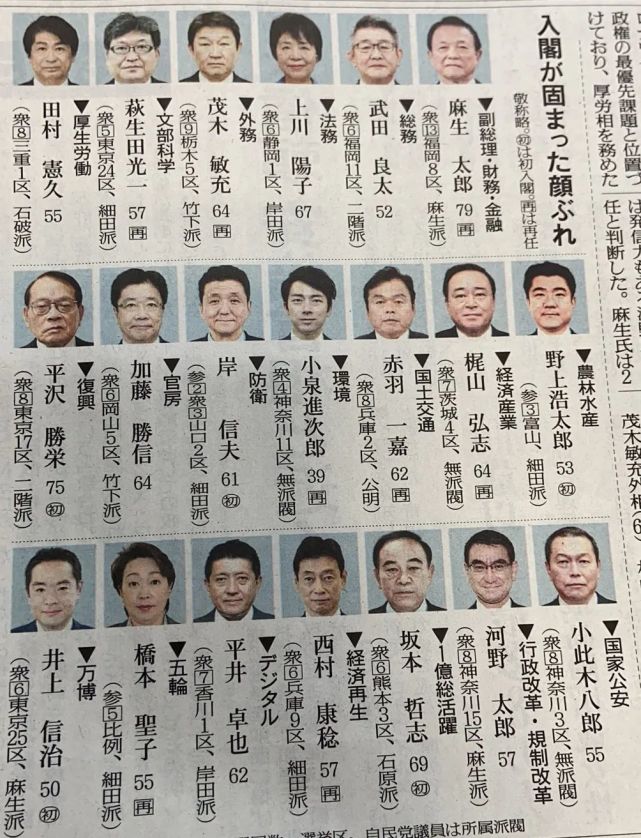 政権の最優先課題と位置づ
けており、厚労相を務めた
入閣が固まった顔ぶれ
敬称略。初は初入閣。再は再任
▼副総理・財務・金融
麻生 太郎 79 再
(衆13福岡8区、麻生派)
▼総務
武田 良太 52
(衆6福岡11区、二階派)
▼法務
上川 陽子 67
(衆6静岡1区、岸田派)
▼外務
茂木 敏充 64 再
(衆9栃木5区、竹下派)
▼文部科学
萩生田光一 57 再
(衆5東京24区、細田派)
▼厚生労働
田村 憲久 55
(衆8三重1区、石破派)
任と判断した。麻生氏は2
▼農林水産
野上浩太郎 53 初
(参3富山、細田派)
▼経済産業
梶山 弘志 64 再
(衆7茨城4区、無派閥)
▼国土交通
赤羽 一嘉 62 再
(衆8兵庫2区、公明)
▼環境
小泉進次郎 39 再
(衆4神奈川11区、無派閥)
▼防衛
岸 信夫 61 初
(参2衆3山口2区、細田派)
▼官房
加藤 勝信 64
(衆6岡山5区、竹下派)
▼復興
平沢 勝栄 75 初
(衆8東京17区、二階派)
茂木敏充外相(6
▼国家公安
小此木八郎 55
(衆8神奈川3区、無派閥)
▼行政改革・規制改革
河野 太郎 57
(衆8神奈川15区、麻生派)
▼1億総活躍
坂本 哲志 69 初
(衆6熊本3区、石原派)
▼経済再生
西村 康稔 57 再
(衆6兵庫9区、細田派)
▼デジタル
平井 卓也 62
(衆7香川1区、岸田派)
▼五輪
橋本 聖子 55 再
(参5比例、細田派)
▼万博
井上 信治 50 初
(衆6東京25区、麻生派)
選挙区、自民党議員は所属派閥